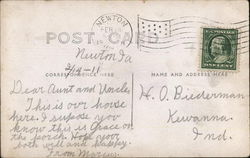 NEWTON
FEB
POST CARD
Newton, Ia
2/14-11
CORRESPONDENCE HERE
NAME AND ADDRESS HERE
Dear Aunt and Uncle,
This is our house
here. I suppose you
know this is Grace on
the porch. Hope your
both well and happy.
From
H. O. Biederman
Kewanna.
Ind.